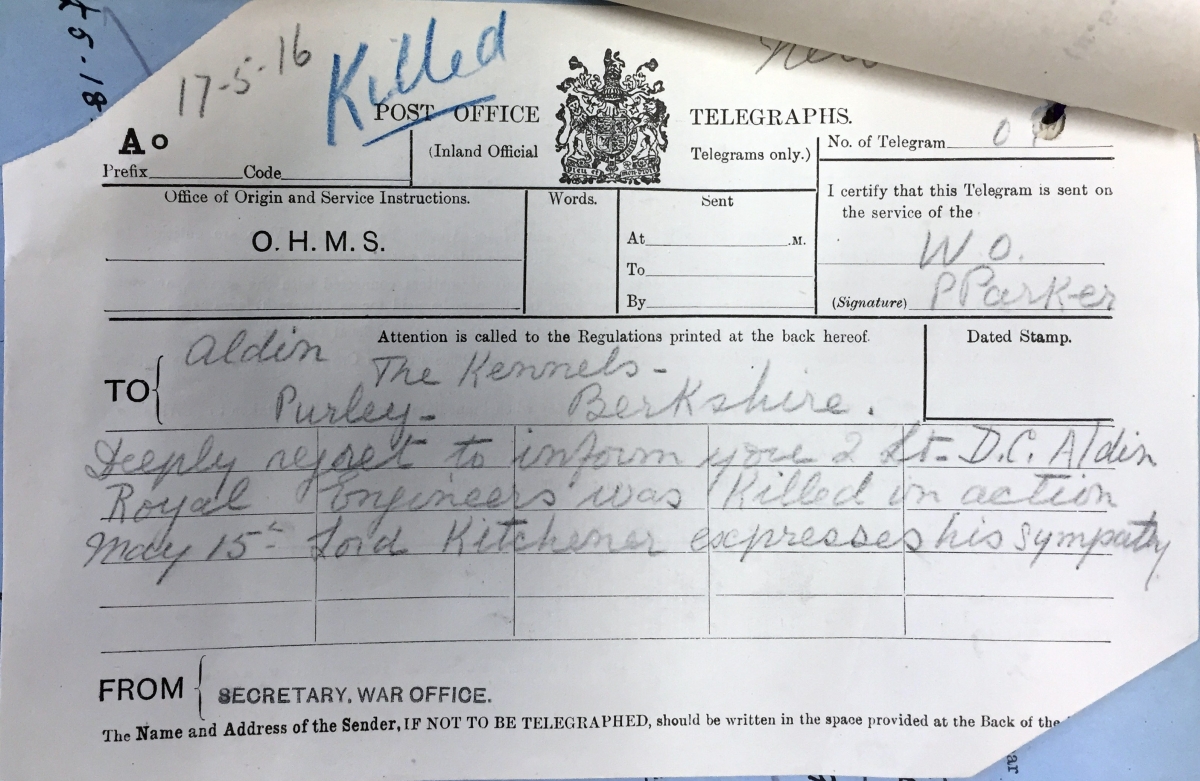 17-5-16
Killed
POST OFFICE TELEGRAPHS.
Ao
(Inland Official Telegrams only.)
No. of Telegram
Prefix Code
Office of Origin and Service Instructions.
O. H. M. S.
Words.
Sent
At .M.
To
By
I certify that this Telegram is sent on
the service of the
W.O.
(Signature) P Parker
Attention is called to the Regulations printed at the back hereof.
Dated Stamp.
TO
Aldin
The Kennels-
Purley- Berkshire.
Deeply regret to inform you 2 Lt- D.C. Aldin
Royal Engineers was Killed in action
May 15th Lord Kitchener expresses his sympathy
FROM SECRETARY. WAR OFFICE.
The Name and Address of the Sender, IF NOT TO BE TELEGRAPHED, should be written in the space provided at the Back of the